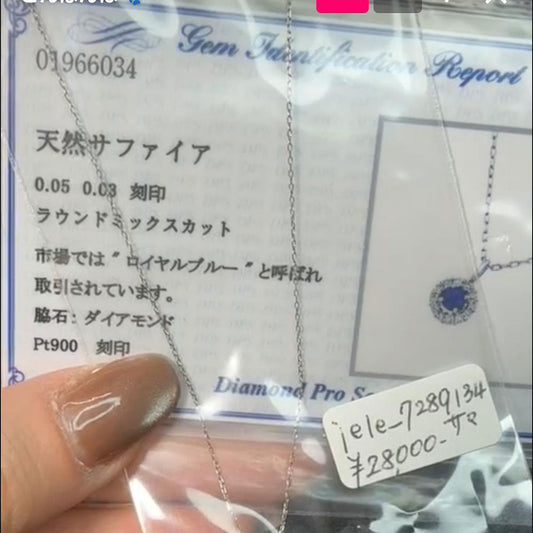 Gem Identification Report
01966034
天然サファイア
0.05 0.03 刻印
ラウンドミックスカット
市場では"ロイヤルブルー"と呼ばれ
取引されています。
脇石:ダイアモンド
Pt900 刻印
Diamond Pro
iele_7289134
サマ
¥28,000-